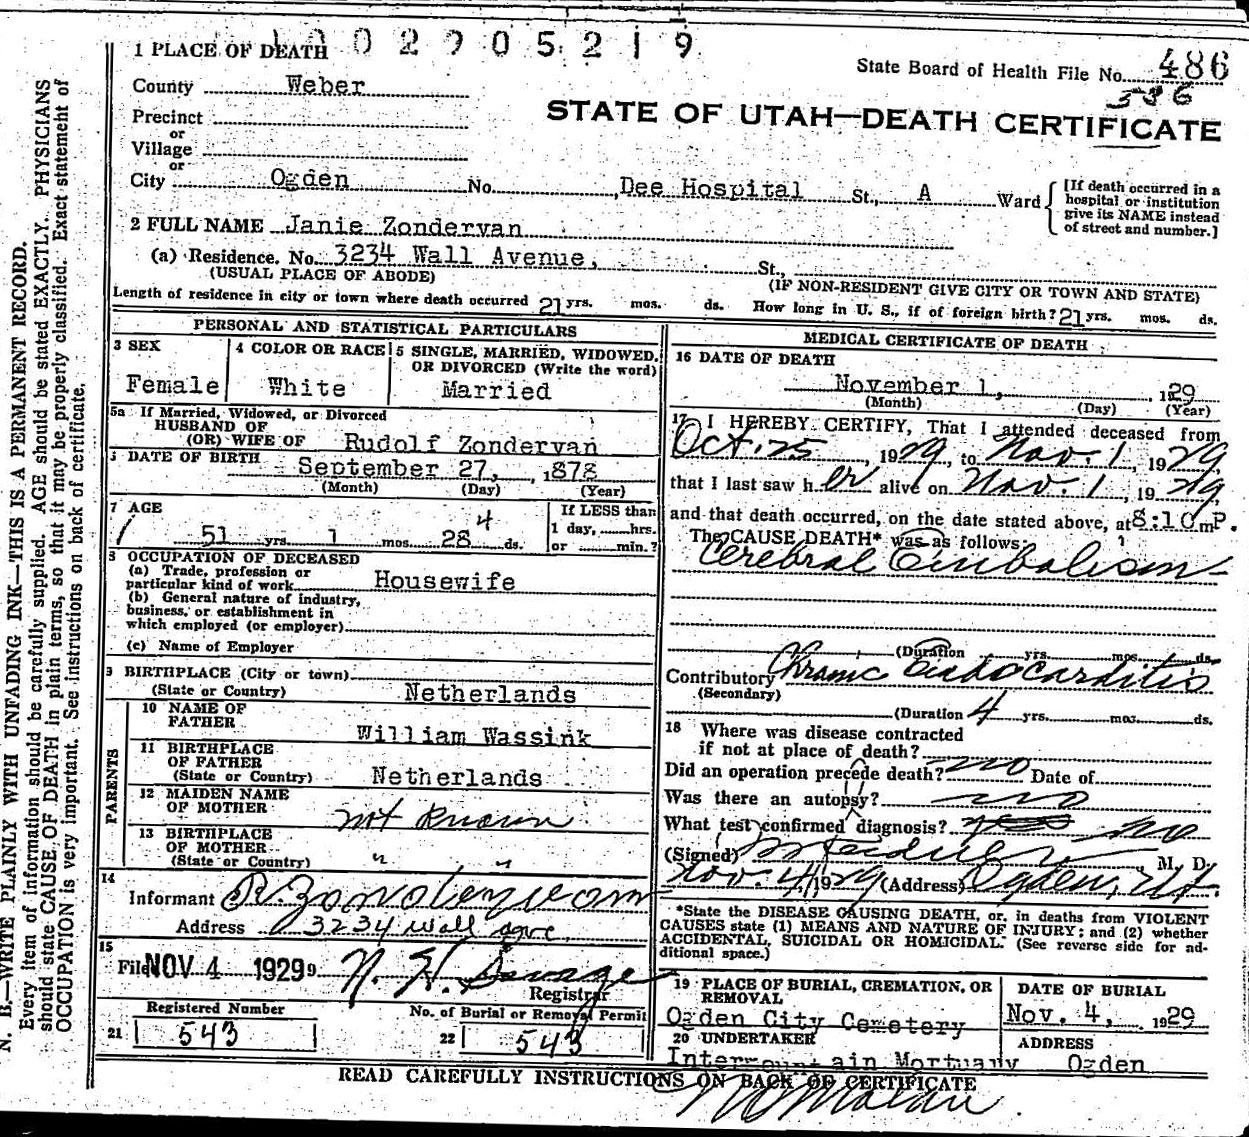 1002905219
1 PLACE OF DEATH
State Board of Health File No. 486
536
County Weber
STATE OF UTAH—DEATH CERTIFICATE
Precinct
or
Village
or
City Ogden No. Dee Hospital St., A Ward
[If death occurred in a
hospital or institution
give its NAME instead
of street and number.]
2 FULL NAME Janie Zondervan
(a) Residence. No. 3234 Wall Avenue, St.,
(USUAL PLACE OF ABODE) (IF NON-RESIDENT GIVE CITY OR TOWN AND STATE)
Length of residence in city or town where death occurred 21 yrs. mos. ds. How long in U. S., if of foreign birth? 21 yrs. mos. ds.
PERSONAL AND STATISTICAL PARTICULARS
3 SEX
Female
4 COLOR OR RACE
White
5 SINGLE, MARRIED, WIDOWED.
OR DIVORCED (Write the word)
Married
5a If Married, Widowed, or Divorced
HUSBAND OF
(OR) WIFE OF Rudolf Zondervan
DATE OF BIRTH September 27, 1878
(Month) (Day) (Year)
7 AGE
51 yrs. 1 mos. 28 4 ds.
If LESS than
1 day, hrs.
or min.?
8 OCCUPATION OF DECEASED
(a) Trade, profession or
particular kind of work Housewife
(b) General nature of industry,
business, or establishment in
which employed (or employer)
(c) Name of Employer
9 BIRTHPLACE (City or town)
(State or Country) Netherlands
PARENTS
10 NAME OF
FATHER William Wassink
11 BIRTHPLACE
OF FATHER
(State or Country) Netherlands
12 MAIDEN NAME
OF MOTHER not known
13 BIRTHPLACE
OF MOTHER
(State or Country) " "
14
Informant R. Zondervan
Address 3234 Wall Ave
15
Filed NOV 4 1929 9 N. H. Savage
Registrar
Registered Number
21 543
No. of Burial or Removal Permit
22 543
MEDICAL CERTIFICATE OF DEATH
16 DATE OF DEATH
November 1, 1929
(Month) (Day) (Year)
17 I HEREBY CERTIFY, That I attended deceased from
Oct. 25, 1929, to Nov. 1, 1929
that I last saw her alive on Nov. 1, 1929
and that death occurred, on the date stated above, at 8:10 mP.
The CAUSE DEATH* was as follows:
Cerebral Embolism
(Duration yrs. mos. ds.
Contributory Chronic Endocarditis
(Secondary)
(Duration 4 yrs. mos. ds.
18 Where was disease contracted
if not at place of death?
Did an operation precede death? no Date of
Was there an autopsy? no
What test confirmed diagnosis? yes no
(Signed) , M. D.
Nov. 4, 1929 (Address) Ogden, Ut.
*State the DISEASE CAUSING DEATH, or, in deaths from VIOLENT
CAUSES state (1) MEANS AND NATURE OF INJURY; and (2) whether
ACCIDENTAL, SUICIDAL OR HOMICIDAL. (See reverse side for ad-
ditional space.)
19 PLACE OF BURIAL, CREMATION, OR
REMOVAL
Ogden City Cemetery
DATE OF BURIAL
Nov. 4, 1929
20 UNDERTAKER
Intermountain Mortuary
ADDRESS
Ogden
READ CAREFULLY INSTRUCTIONS ON BACK OF CERTIFICATE
N. B.—WRITE PLAINLY WITH UNFADING INK—THIS IS A PERMANENT RECORD.
Every item of information should be carefully supplied. AGE should be stated EXACTLY. PHYSICIANS
should state CAUSE OF DEATH in plain terms, so that it may be properly classified. Exact statement of
OCCUPATION is very important. See instructions on back of certificate.